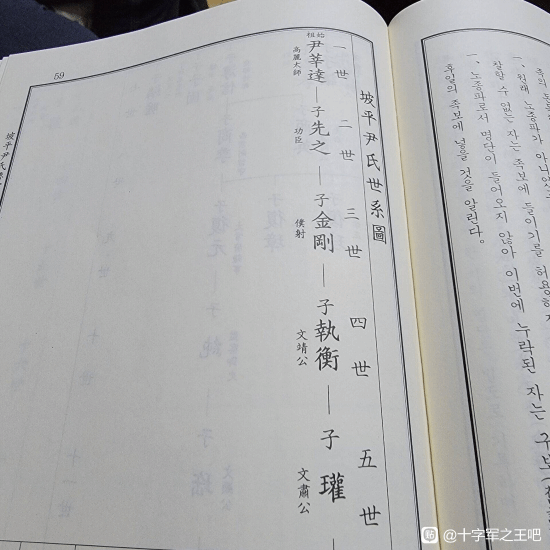 一、원래 노종파가 아니었
찰할 수 없는 자는 족보에 들이기를 허용하지
一、노종파로서 명단이 들어오지 않아 이번에 누락된 자는 구보
후일의 족보에 넣을 것을 알린다。
坡平尹氏世系圖
一世 二世 三世 四世 五世
始祖
尹莘達—子先之—子金剛—子執衡—子瓘
高麗太師 功臣 僕射 文靖公 文肅公
59
坡平尹氏
貼 @十字军之王吧